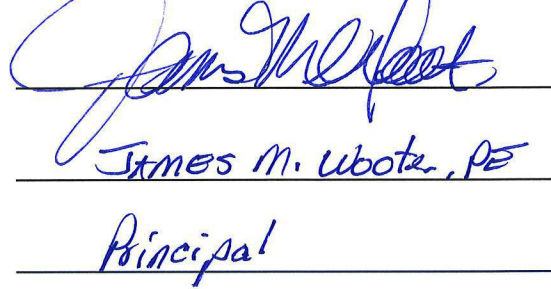 James M. Wooten
JAMES M. Wooten, PE
Principal